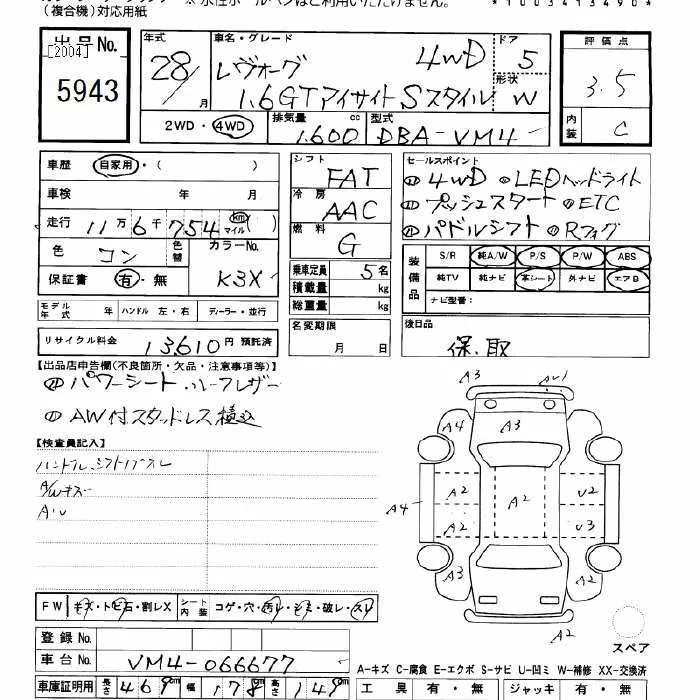 (複合機)対応用紙
出品No.
[2004]
5943
年式 28/ 月
車名・グレード レヴォーグ 4WD
1.6GTアイサイトSスタイル
ドア 5
形状 W
評価点 3.5
内装 C
2WD・4WD 排気量 1.600 cc 型式 DBA-VM4
車歴 自家用・( )
車検 年 月
走行 11万6千754 km マイル ( )
色 コン 色替 カラーNo. K3X
保証書 有・無
モデル年式 年 ハンドル 左・右 ディーラー・並行
リサイクル料金 13,610 円 預託済
シフト FAT
冷房 AAC
燃料 G
乗車定員 5名
積載量 kg
総重量 kg
名変期限 月 日
セールスポイント
4WD LEDヘッドライト
プッシュスタート ETC
パドルシフト Rフォグ
装備品 S/R 純A/W P/S P/W ABS
純TV 純ナビ 革シート 外ナビ エアB
ナビ型番:
後日品 保.取
【出品店申告欄(不良箇所・欠品・注意事項等)】
パワーシート ハーフレザー
AW付スタッドレス積込
【検査員記入】
ハンドル、シフトノブスレ
A/Wキズ
FW キズ・トビ石・割レX シート内装 コゲ・穴・汚レ・シミ・破レ・スレ
登録No.
車台No. VM4-066677
車庫証明用 長さ 469cm 幅 178cm 高さ 149cm
A3
A4 A3 A4
A2 A2 U2
A4
A2 U3
A3 A2
A2
スペア
A-キズ C-腐食 E-エクボ S-サビ U-凹ミ W-補修 XX-交換済
工具 有・無 ジャッキ 有・無